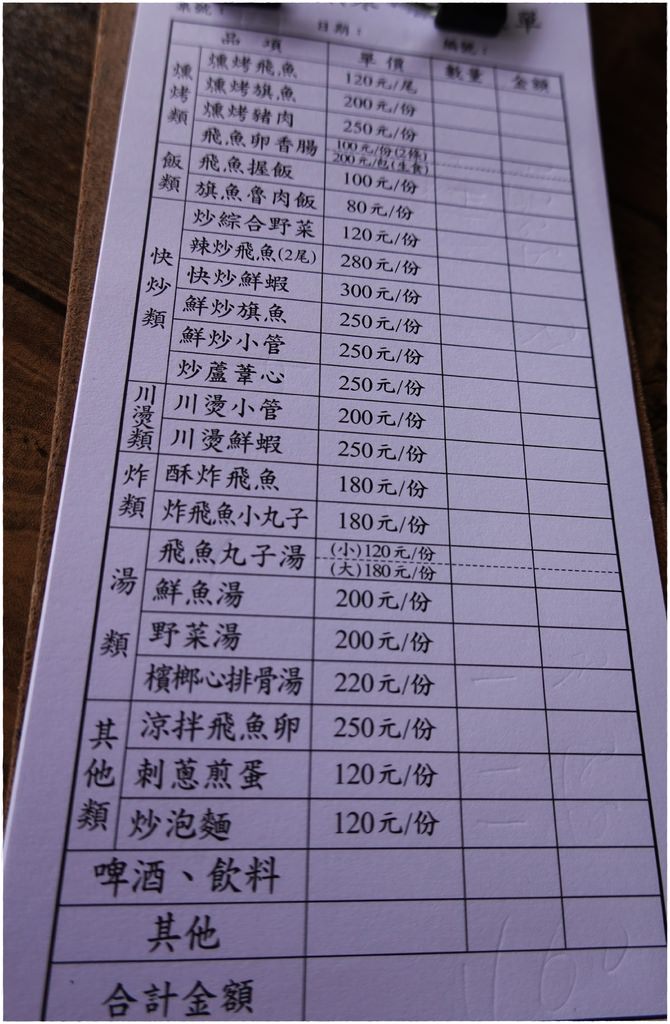 桌號：
單
日期：
編號：
品項 單價 數量 金額
燻烤類
燻烤飛魚 120元/尾
燻烤旗魚 200元/份
燻烤豬肉 250元/份
飛魚卵香腸 100元/份(2條)
200元/包(生食)
飯類
飛魚握飯 100元/份
旗魚魯肉飯 80元/份
快炒類
炒綜合野菜 120元/份
辣炒飛魚(2尾) 280元/份
快炒鮮蝦 300元/份
鮮炒旗魚 250元/份
鮮炒小管 250元/份
炒蘆葦心 250元/份
川燙類
川燙小管 200元/份
川燙鮮蝦 250元/份
炸類
酥炸飛魚 180元/份
炸飛魚小丸子 180元/份
湯類
飛魚丸子湯 (小)120元/份
(大)180元/份
鮮魚湯 200元/份
野菜湯 200元/份
檳榔心排骨湯 220元/份
其他類
涼拌飛魚卵 250元/份
刺蔥煎蛋 120元/份
炒泡麵 120元/份
啤酒、飲料
其他
合計金額